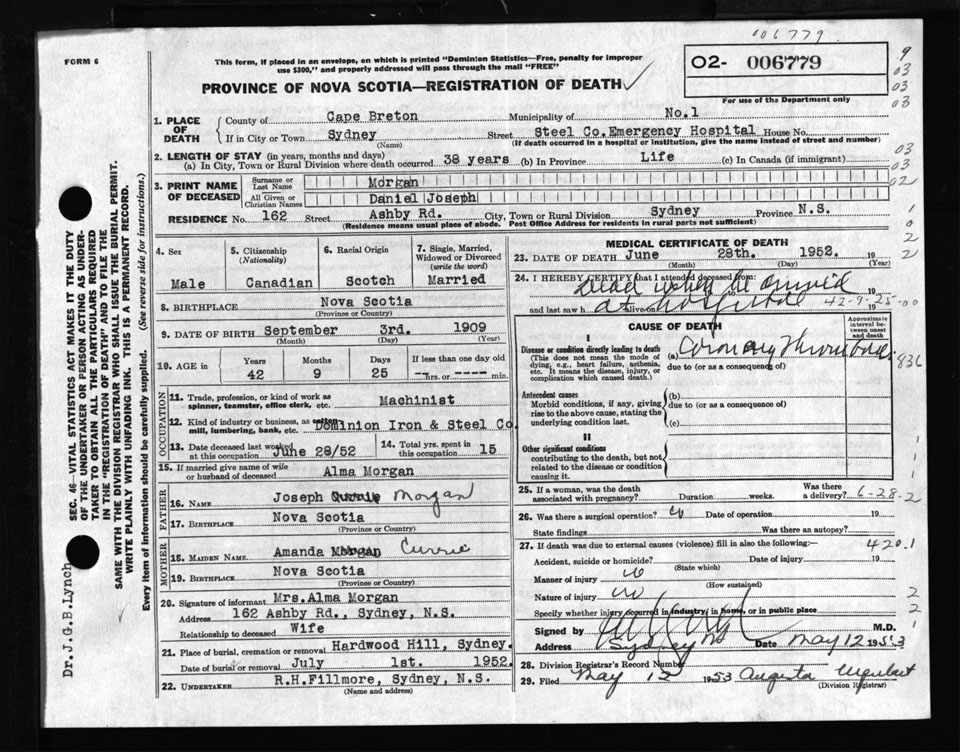 006779
FORM 6
This form, if placed in an envelope, on which is printed "Dominion Statistics—Free, penalty for improper
use $300," and properly addressed will pass through the mail "FREE"
O2- 006779
For use of the Department only
PROVINCE OF NOVA SCOTIA—REGISTRATION OF DEATH
9
03
03
03
1. PLACE OF DEATH
County of Cape Breton Municipality of No.1
If in City or Town Sydney Street Steel Co.Emergency Hospital House No.
(Name) (If death occurred in a hospital or institution, give the name instead of street and number)
2. LENGTH OF STAY (in years, months and days)
(a) In City, Town or Rural Division where death occurred 38 years (b) In Province Life (c) In Canada (if immigrant)
03
03
02
3. PRINT NAME OF DECEASED
Surname or Last Name Morgan
All Given or Christian Names Daniel Joseph
RESIDENCE No. 162 Street Ashby Rd. City, Town or Rural Division Sydney Province N.S.
(Residence means usual place of abode. Post Office Address for residents in rural parts not sufficient)
1
0
2
2
4. Sex
Male
5. Citizenship
(Nationality)
Canadian
6. Racial Origin
Scotch
7. Single, Married,
Widowed or Divorced
(write the word)
Married
8. BIRTHPLACE Nova Scotia
(Province or Country)
9. DATE OF BIRTH September 3rd. 1909
(Month) (Day) (Year)
10. AGE in
Years Months Days If less than one day old
42 9 25 ---hrs. or ---- min.
OCCUPATION
11. Trade, profession, or kind of work as
spinner, teamster, office clerk, etc. Machinist
12. Kind of industry or business, as
mill, lumbering, bank, etc. Dominion Iron & Steel Co.
13. Date deceased last worked
at this occupation June 28/52
14. Total yrs. spent in
this occupation 15
15. If married give name of wife
or husband of deceased Alma Morgan
FATHER
16. NAME Joseph Currie Morgan
17. BIRTHPLACE Nova Scotia
(Province or Country)
MOTHER
18. MAIDEN NAME Amanda Morgan Currie
19. BIRTHPLACE Nova Scotia
(Province or Country)
20. Signature of informant Mrs.Alma Morgan
Address 162 Ashby Rd., Sydney, N.S.
Relationship to deceased Wife
21. Place of burial, cremation or removal Hardwood Hill, Sydney.
Date of burial or removal July 1st. 1952.
22. UNDERTAKER R.H.Fillmore, Sydney, N.S.
(Name and address)
MEDICAL CERTIFICATE OF DEATH
23. DATE OF DEATH June 28th. 1952. 19
(Month) (Day) (Year)
24. I HEREBY CERTIFY that I attended deceased from:
Dead when he arrived 19
and last saw h alive on at hospital 19
42-9-25-00
CAUSE OF DEATH
Approximate
interval be-
tween onset
and death
I
Disease or condition directly leading to death
(This does not mean the mode of
dying, e.g., heart failure, asthenia,
etc. It means the disease, injury, or
complication which caused death.)
(a) Coronary Thrombosis
due to (or as a consequence of)
836
Antecedent causes
Morbid conditions, if any, giving
rise to the above cause, stating the
underlying condition last.
(b)
due to (or as a consequence of)
(c)
II
Other significant conditions
contributing to the death, but not
related to the disease or condition
causing it.
1
1
1
25. If a woman, was the death
associated with pregnancy? Duration weeks. Was there
a delivery? 6-28-2
26. Was there a surgical operation? Date of operation 19
State findings Was there an autopsy?
27. If death was due to external causes (violence) fill in also the following:— 420.1
Accident, suicide or homicide? Date of injury 19
(State which)
Manner of injury
(How sustained)
Nature of injury no
Specify whether injury occurred in industry, in home, or in public place
2
2
1
Signed by M.D.
Address Sydney NS Date May 12 1953
28. Division Registrar's Record Number
29. Filed May 12 1953 Augusta Urquhart
(Division Registrar)
SEC. 46—VITAL STATISTICS ACT MAKES IT THE DUTY
OF THE UNDERTAKER OR PERSON ACTING AS UNDER-
TAKER TO OBTAIN ALL THE PARTICULARS REQUIRED
IN THE "REGISTRATION OF DEATH" AND TO FILE THE
SAME WITH THE DIVISION REGISTRAR WHO SHALL ISSUE THE BURIAL PERMIT
WRITE PLAINLY WITH UNFADING INK. THIS IS A PERMANENT RECORD.
Every item of information should be carefully supplied. (See reverse side for instructions.)
Dr. J.G.B.Lynch